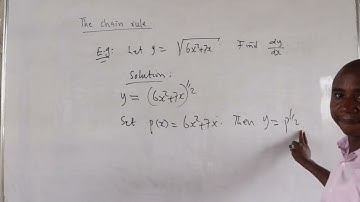 The chain rule
E.g: Let y = √(6x²+7x) Find dy/dx
Solution:
y = (6x²+7x)^1/2
Set p(x) = 6x²+7x. Then y = p^1/2